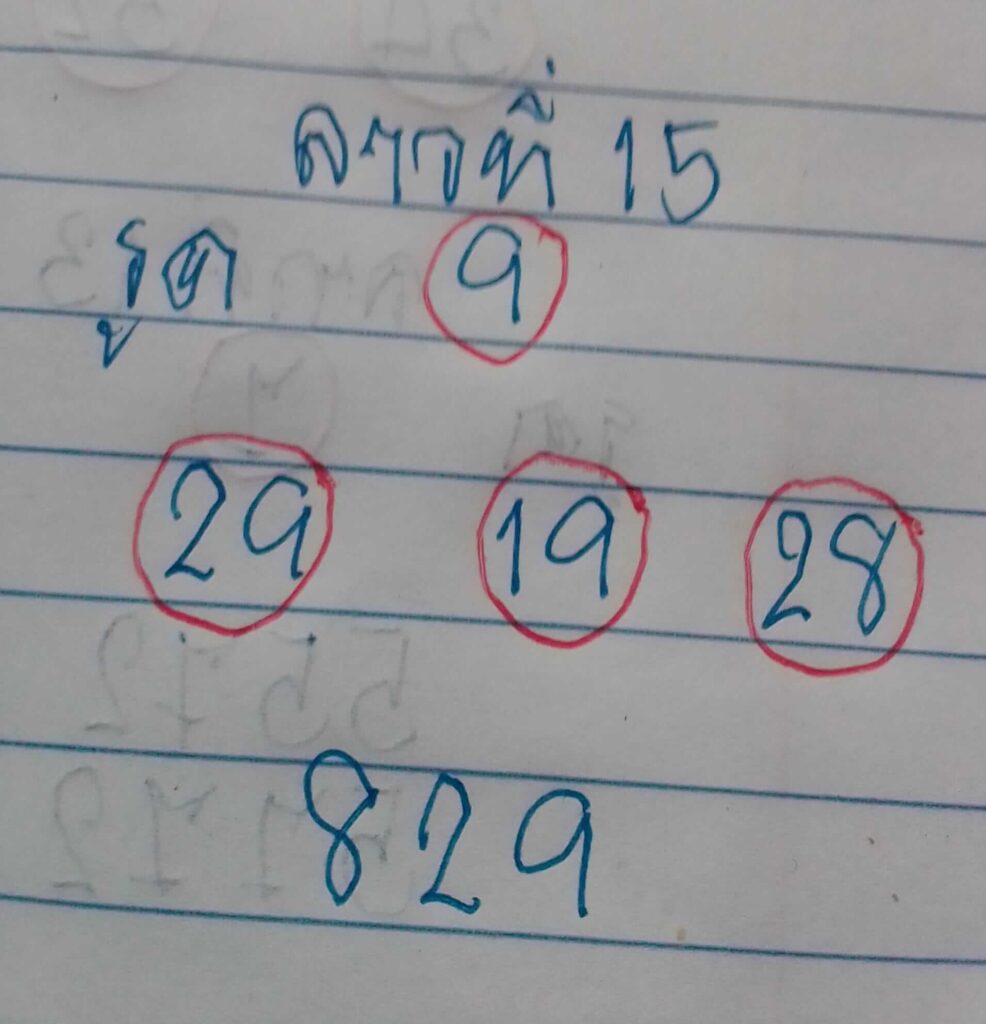 ลาวที่ 15
รูด 9
29 19 28
829